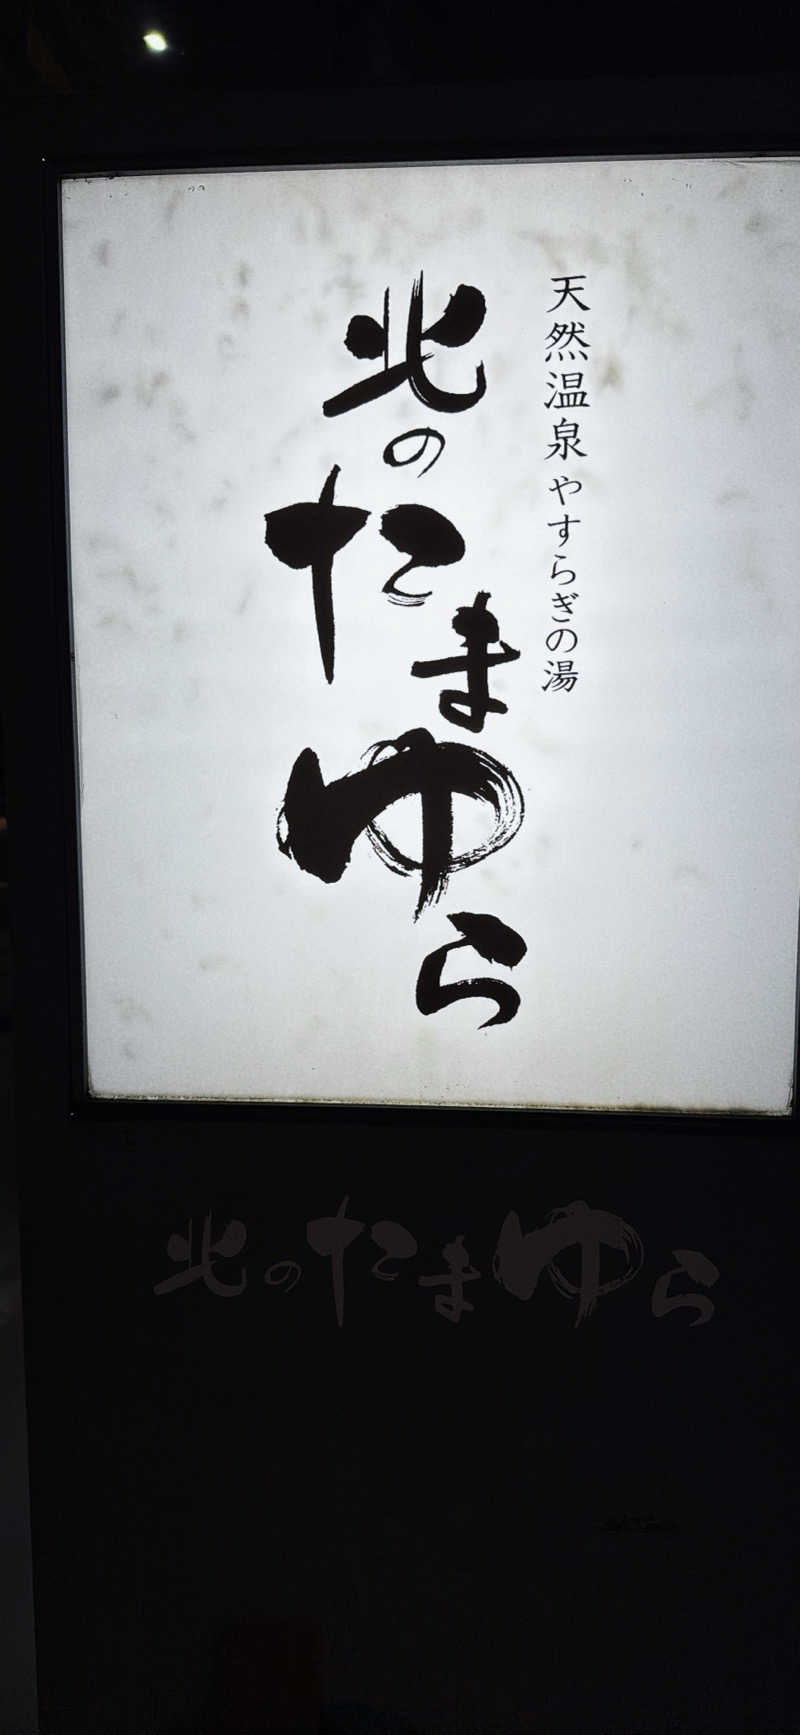 天然温泉 やすらぎの湯
北のたまゆら
北のたまゆら